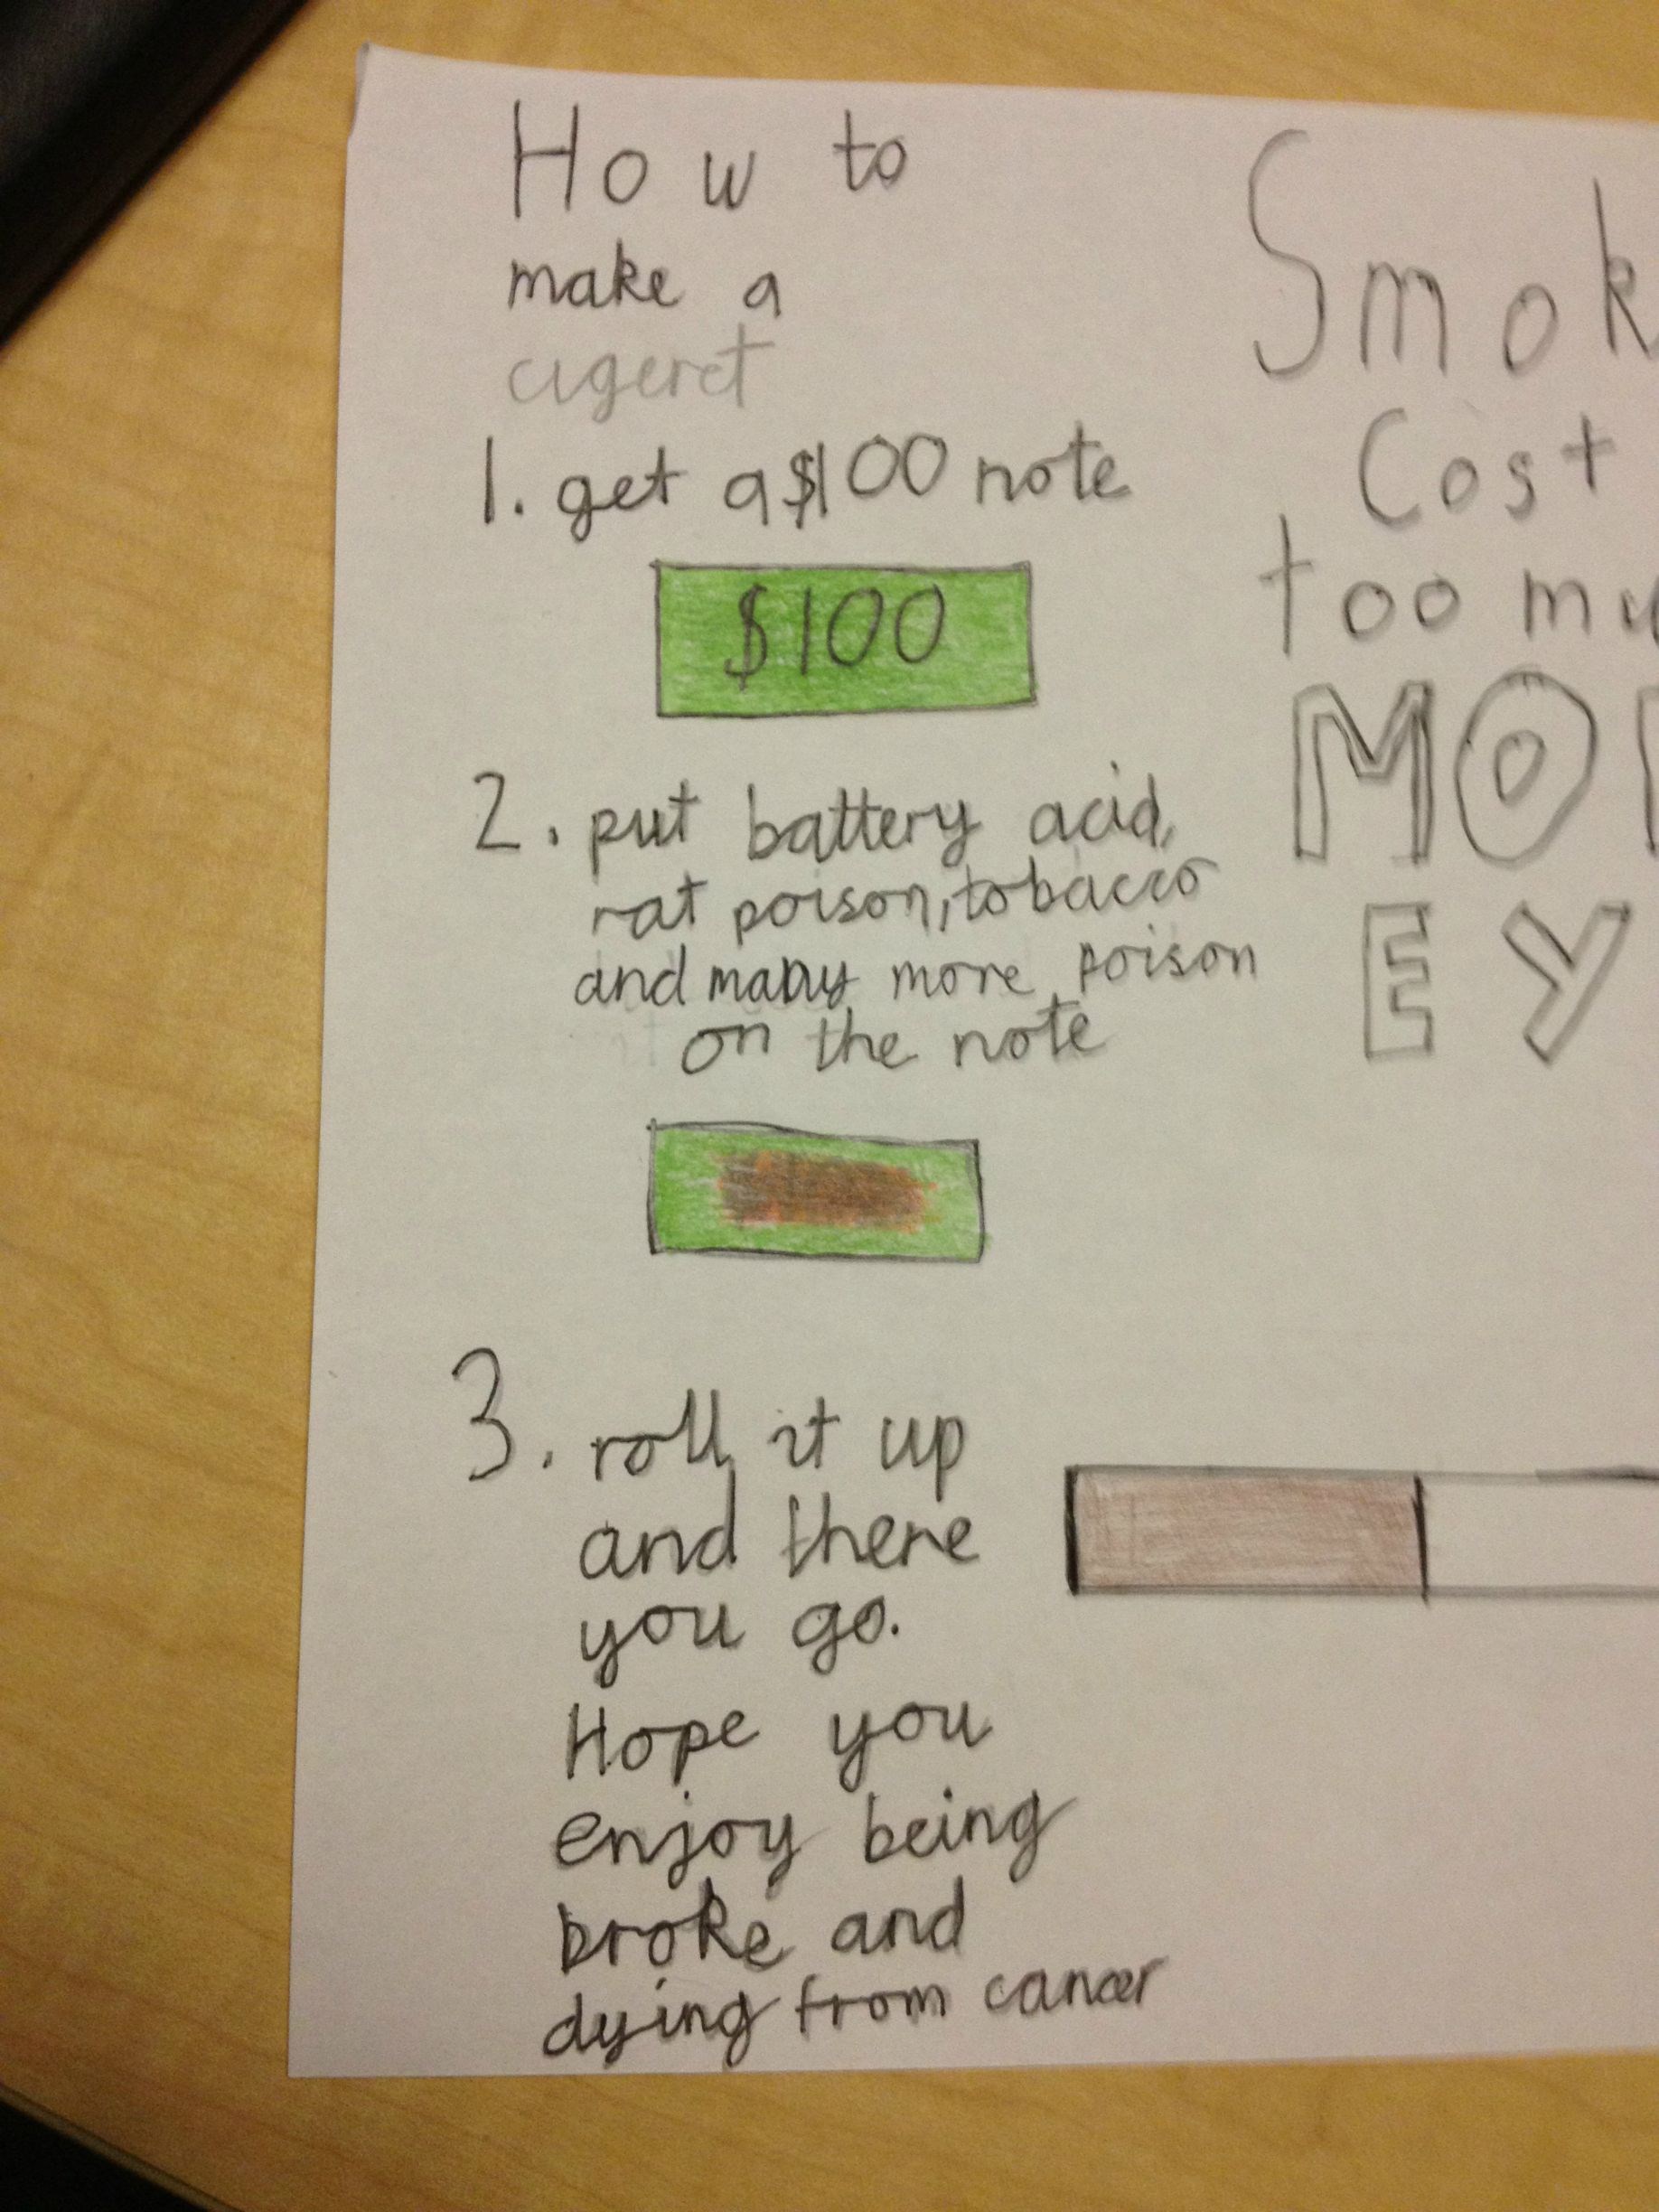 How to
make a
cigeret
1. get a $100 note
$100
2. put battery acid,
rat poison, tobacco
and many more poison
on the note
3. roll it up
and there
you go.
Hope you
enjoy being
broke and
dying from cancer
Smok
Cost
too mu
MO
EY